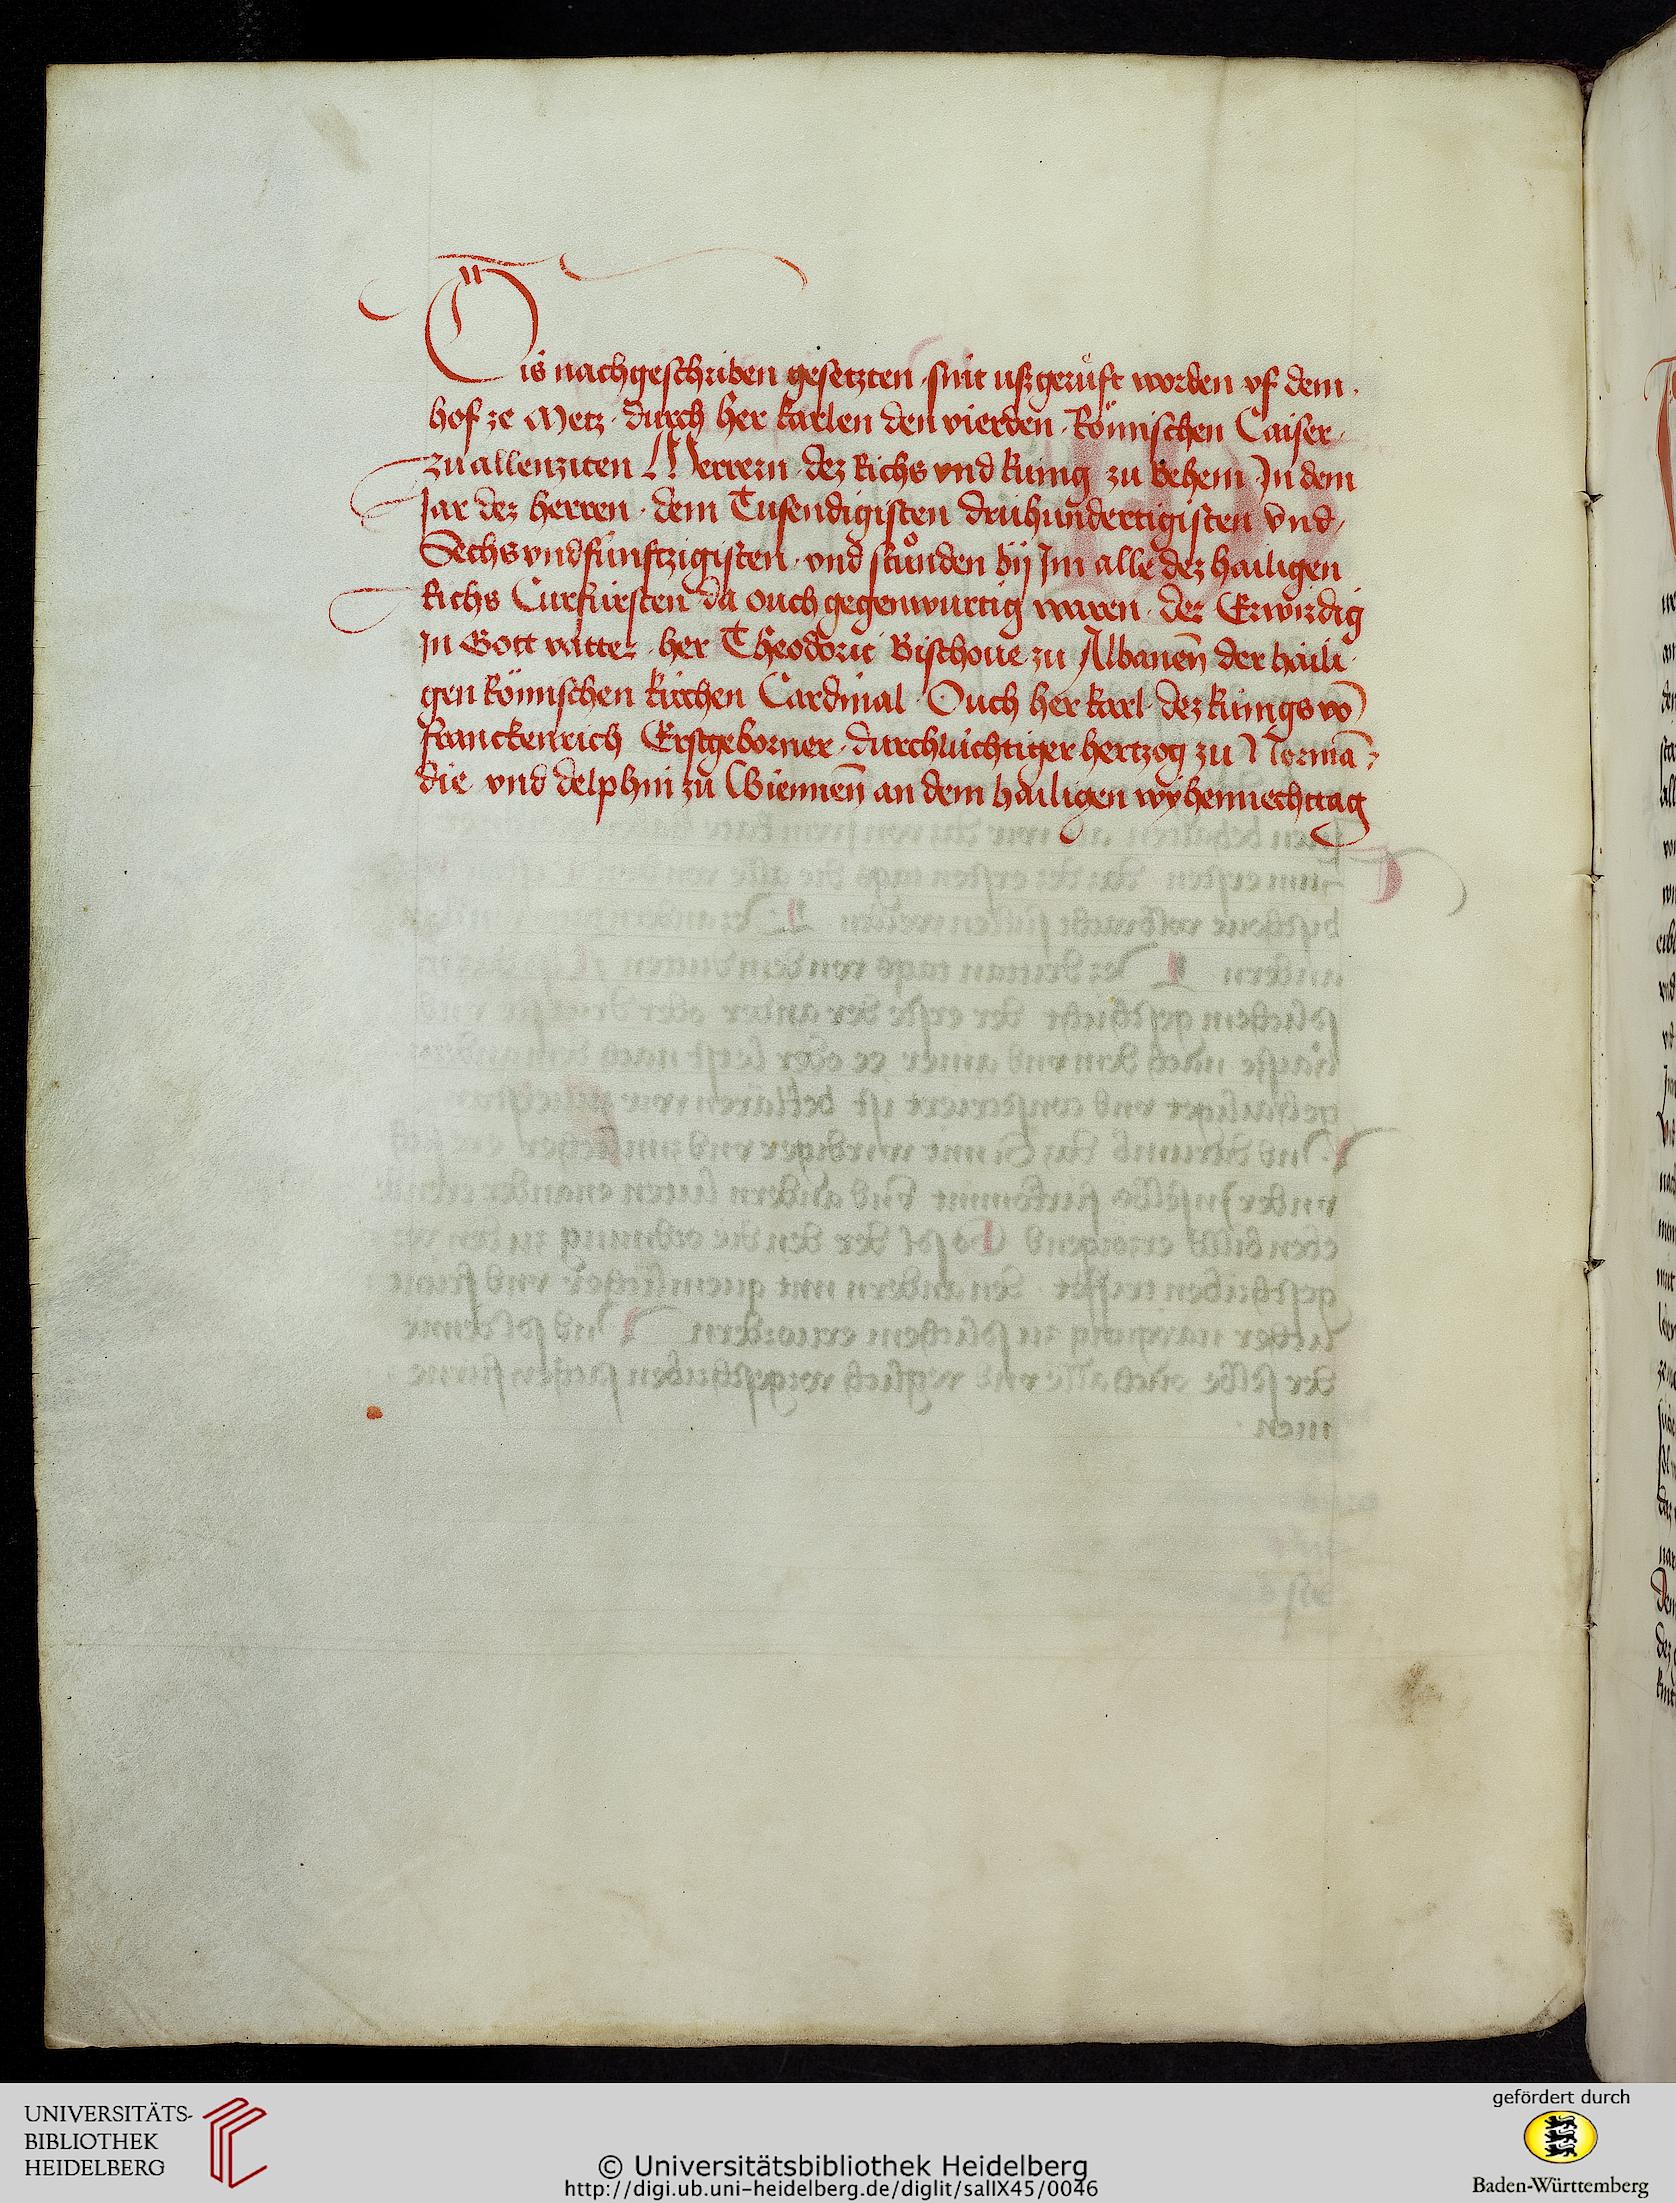 Dis nachgeschriben gesetzten sint uszgerůft worden vf dem.
hof ze Metz. durch her karlen den vierden. Römischen Caiser.
zu allenziten Merrern. dez Richs vnd kunig zu behem In dem
Jar dez herren. dem Tusendigisten drúhundertigisten vnd.
Sechsvndfúnftzigisten. vnd stůnden bÿ Jm alle dez hailigen
Richs Curfúrsten da ouch gegenwurtig waren. der Erwirdig
Jn Gott vatter. her Theodoric Bischoue zu Albanen̄ der haili
gen Römischen kirchen Cardinal. Ouch her karl. dez kúnigs vō
franckenrich Erstgeborner. durchlúchtiger hertzog zu Normā
die vnd delphin zu Wiennen̄ an dem hailigen wÿhennechttag
UNIVERSITÄTS-
BIBLIOTHEK
HEIDELBERG
© Universitätsbibliothek Heidelberg
http://digi.ub.uni-heidelberg.de/diglit/salIX45/0046
gefördert durch
Baden-Württemberg